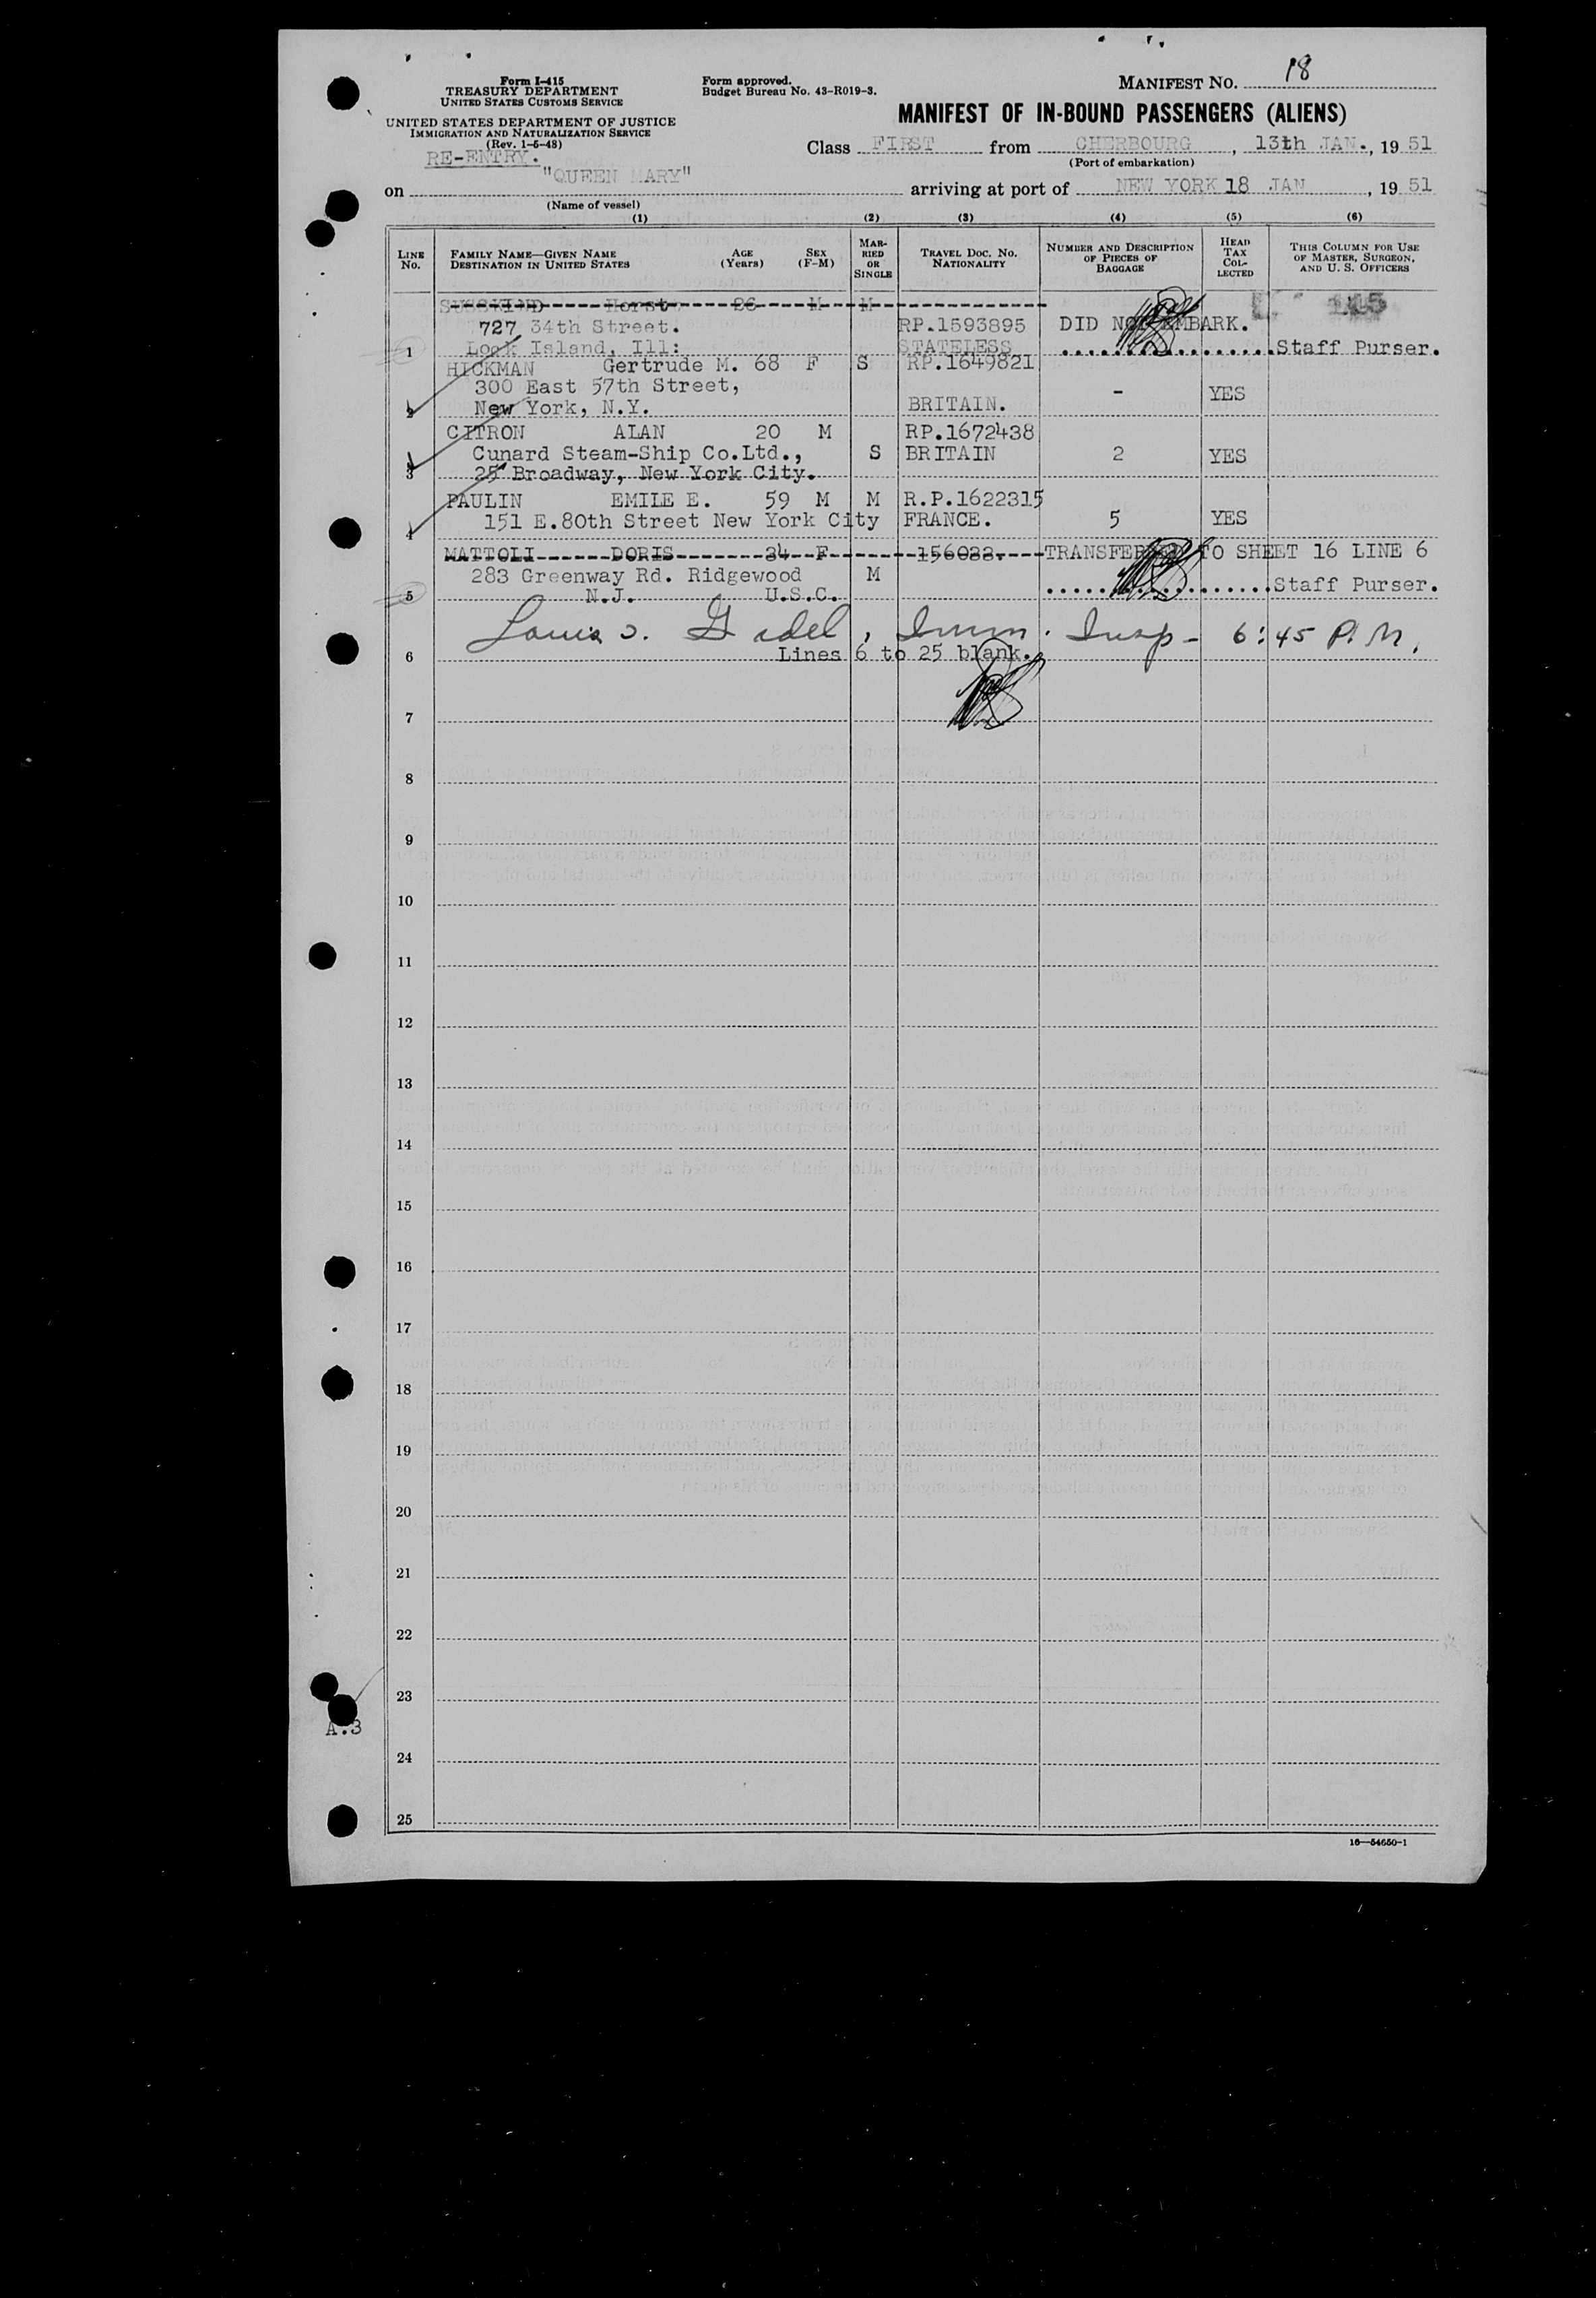 Form I-415
TREASURY DEPARTMENT
UNITED STATES CUSTOMS SERVICE
UNITED STATES DEPARTMENT OF JUSTICE
IMMIGRATION AND NATURALIZATION SERVICE
(Rev. 1-6-48)
Form approved.
Budget Bureau No. 43-R019-3.
MANIFEST NO. 18
MANIFEST OF IN-BOUND PASSENGERS (ALIENS)
RE-ENTRY.
Class FIRST from CHERBOURG, 13th JAN., 19 51
(Port of embarkation)
on "QUEEN MARY" arriving at port of NEW YORK 18 JAN, 19 51
(Name of vessel)
(1) (2) (3) (4) (5) (6)
LINE NO. FAMILY NAME—GIVEN NAME DESTINATION IN UNITED STATES AGE (Years) SEX (F-M) MARRIED OR SINGLE TRAVEL DOC. NO. NATIONALITY NUMBER AND DESCRIPTION OF PIECES OF BAGGAGE HEAD TAX COLLECTED THIS COLUMN FOR USE OF MASTER, SURGEON, AND U. S. OFFICERS
SUSSKIND Horst 26 M M
727 34th Street. RP.1593895 DID NOT EMBARK.
1 Look Island, Ill: STATELESS Staff Purser.
HICKMAN Gertrude M. 68 F S RP.1649821
300 East 57th Street, - YES
2 New York, N.Y. BRITAIN.
CITRON ALAN 20 M RP.1672438
Cunard Steam-Ship Co.Ltd., S BRITAIN 2 YES
3 25 Broadway, New York City.
PAULIN EMILE E. 59 M M R.P.1622315
4 151 E.80th Street New York City FRANCE. 5 YES
MATTOLI DORIS 34 F 156033. TRANSFERRED TO SHEET 16 LINE 6
283 Greenway Rd. Ridgewood M Staff Purser.
5 N.J. U.S.C.
Louis Imm. Insp - 6:45 P.M.
6 Lines 6 to 25 blank.
7
8
9
10
11
12
13
14
15
16
17
18
19
20
21
22
23
A.3
24
25
16—54650-1